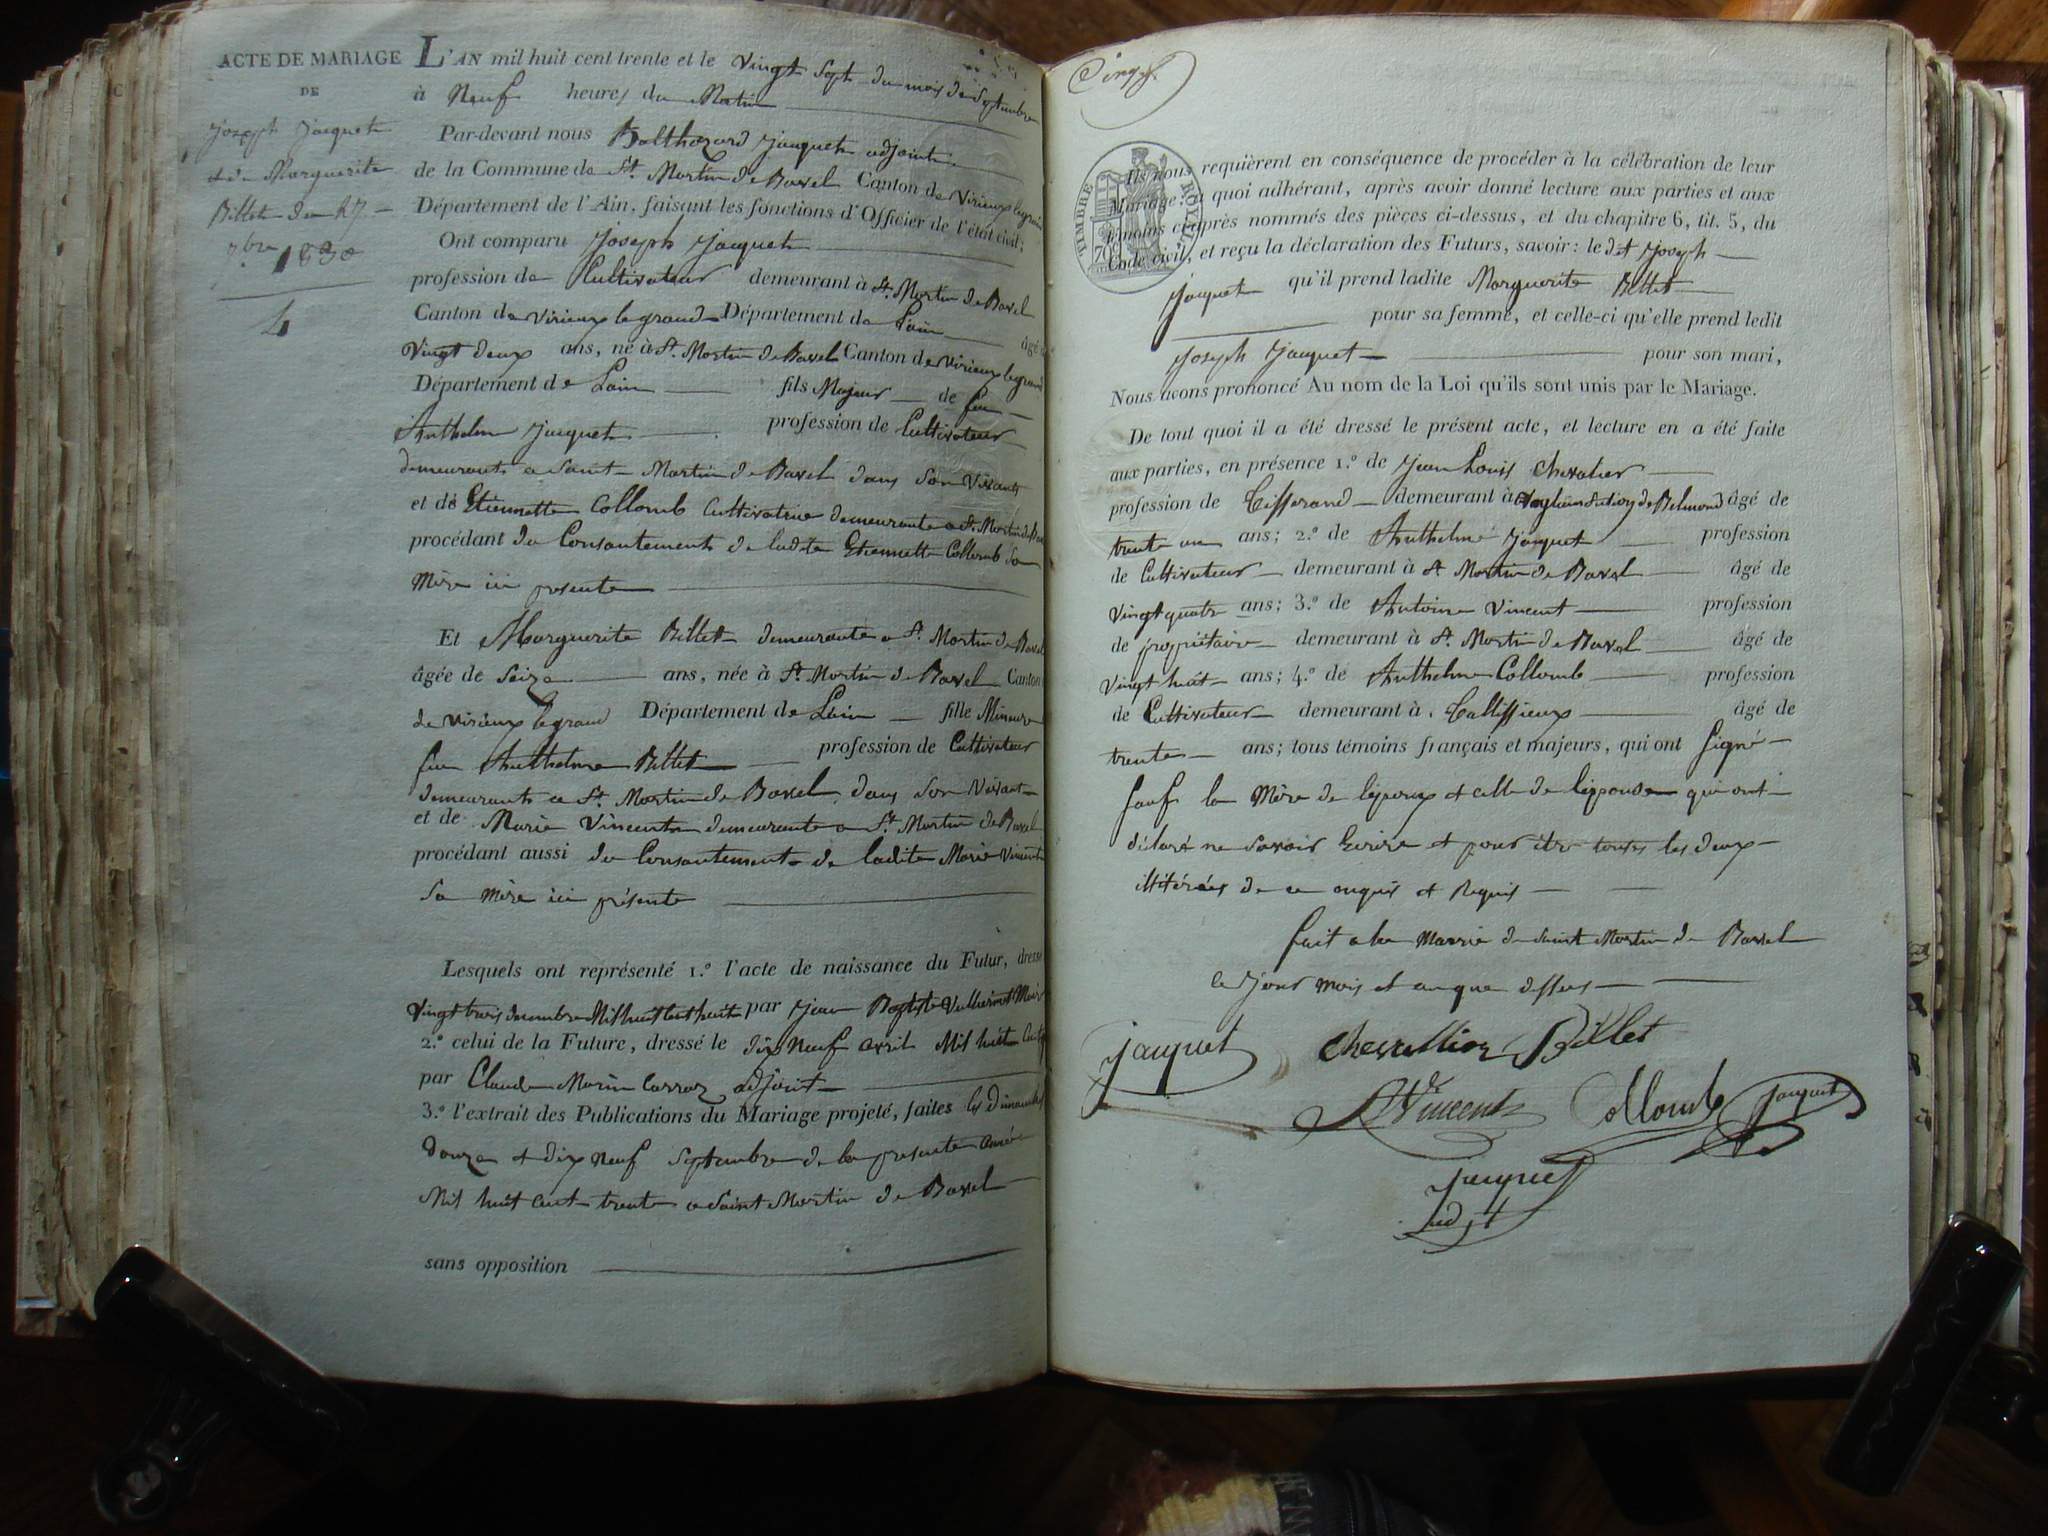 ACTE DE MARIAGE
DE
Joseph Jacquet
et de Marguerite
Billet du 27
7bre 1830
4
L'AN mil huit cent trente et le vingt sept du mois de septembre
à Neuf heures du Matin
Par-devant nous Balthazard Jacquet adjoint
de la Commune de St. Martin de Bavel Canton de Virieux legrand
Département de l'Ain, faisant les fonctions d'Officier de l'état civil;
Ont comparu Joseph Jacquet
profession de Cultivateur demeurant à St. Martin de Bavel
Canton de Virieux legrand Département de Lain âgé
vingt deux ans, né à St. Martin de Bavel Canton de Virieux legrand
Département de Lain fils Majeur de feu
Anthelme Jacquet profession de Cultivateur
demeurant a Saint Martin de Bavel dans son vivant
et de Etiennette Collomb Cultivatrice demeurante a St. Martin de
procédant du Consantement de ladite Etiennette Collomb Sa
Mère ici presente
Et Marguerite Billet demeurante a St. Martin de Bavel
âgée de Seize ans, née à St. Martin de Bavel Canton
de Virieux legrand Département de Lain fille Mineure
feu Anthelme Billet profession de Cultivateur
demeurant a St. Martin de Bavel dans Son Vivant
et de Marie Vincent demeurante a St. Martin de Bavel
procédant aussi du Consantement de ladite Marie Vincent
Sa Mère ici présente
Lesquels ont représenté 1.º l'acte de naissance du Futur, dressé
Vingt trois decembre Mil huit cent huit par Jean Baptiste Maire
2.º celui de la Future, dressé le dix Neuf avril Mil huit Cent
par Claude Marin Carraz adjoint
3.º l'extrait des Publications du Mariage projeté, faites les dimanches
douze et dix Neuf Septembre de la presente année
Mil huit cent trente a Saint Martin de Bavel
sans opposition
TIMBRE ROYAL
70
Ils nous requièrent en conséquence de procéder à la célébration de leur
Mariage: à quoi adhérant, après avoir donné lecture aux parties et aux
témoins ci-après nommés des pièces ci-dessus, et du chapitre 6, tit. 5, du
Code civil, et reçu la déclaration des Futurs, savoir: le dit Joseph
Jacquet qu'il prend ladite Marguerite Billet
pour sa femme, et celle-ci qu'elle prend ledit
Joseph Jacquet pour son mari,
Nous avons prononcé Au nom de la Loi qu'ils sont unis par le Mariage.
De tout quoi il a été dressé le présent acte, et lecture en a été faite
aux parties, en présence 1.º de Jean Louis Chevalier
profession de Tisserand demeurant à de Belmond âgé de
trente un ans; 2.º de Anthelme Jacquet profession
de Cultivateur demeurant à St Martin de Bavel âgé de
vingt quatre ans; 3.º de Antoine Vincent profession
de propriétaire demeurant à St. Martin de Bavel âgé de
vingt huit ans; 4.º de Anthelme Collomb profession
de Cultivateur demeurant à Tallissieux âgé de
trente ans; tous témoins français et majeurs, qui ont signé
sauf la Mère de lépoux et celle de lépouse qui ont
déclaré ne savoir Ecrire et pour être toutes les deux
illitérées de ce enquis et Requis
fait a la Mairie de Saint Martin de Bavel
le Jour mois et an que dessus
Jacquet Chevallier Billet
Vincent Collomb Jacquet
Jacquet
adjt